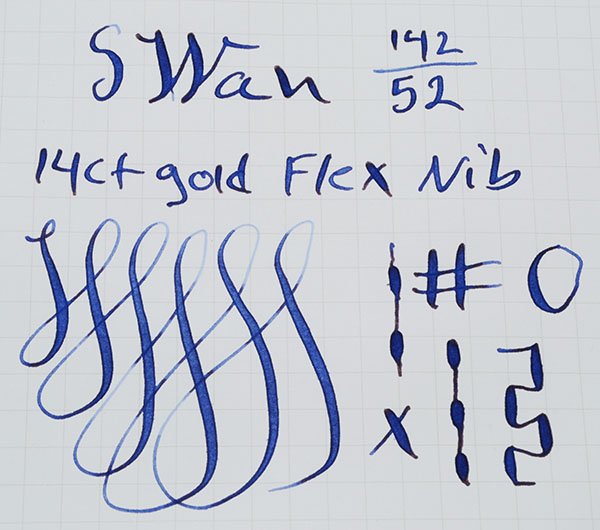 Swan 142/52
14ct gold Flex Nib